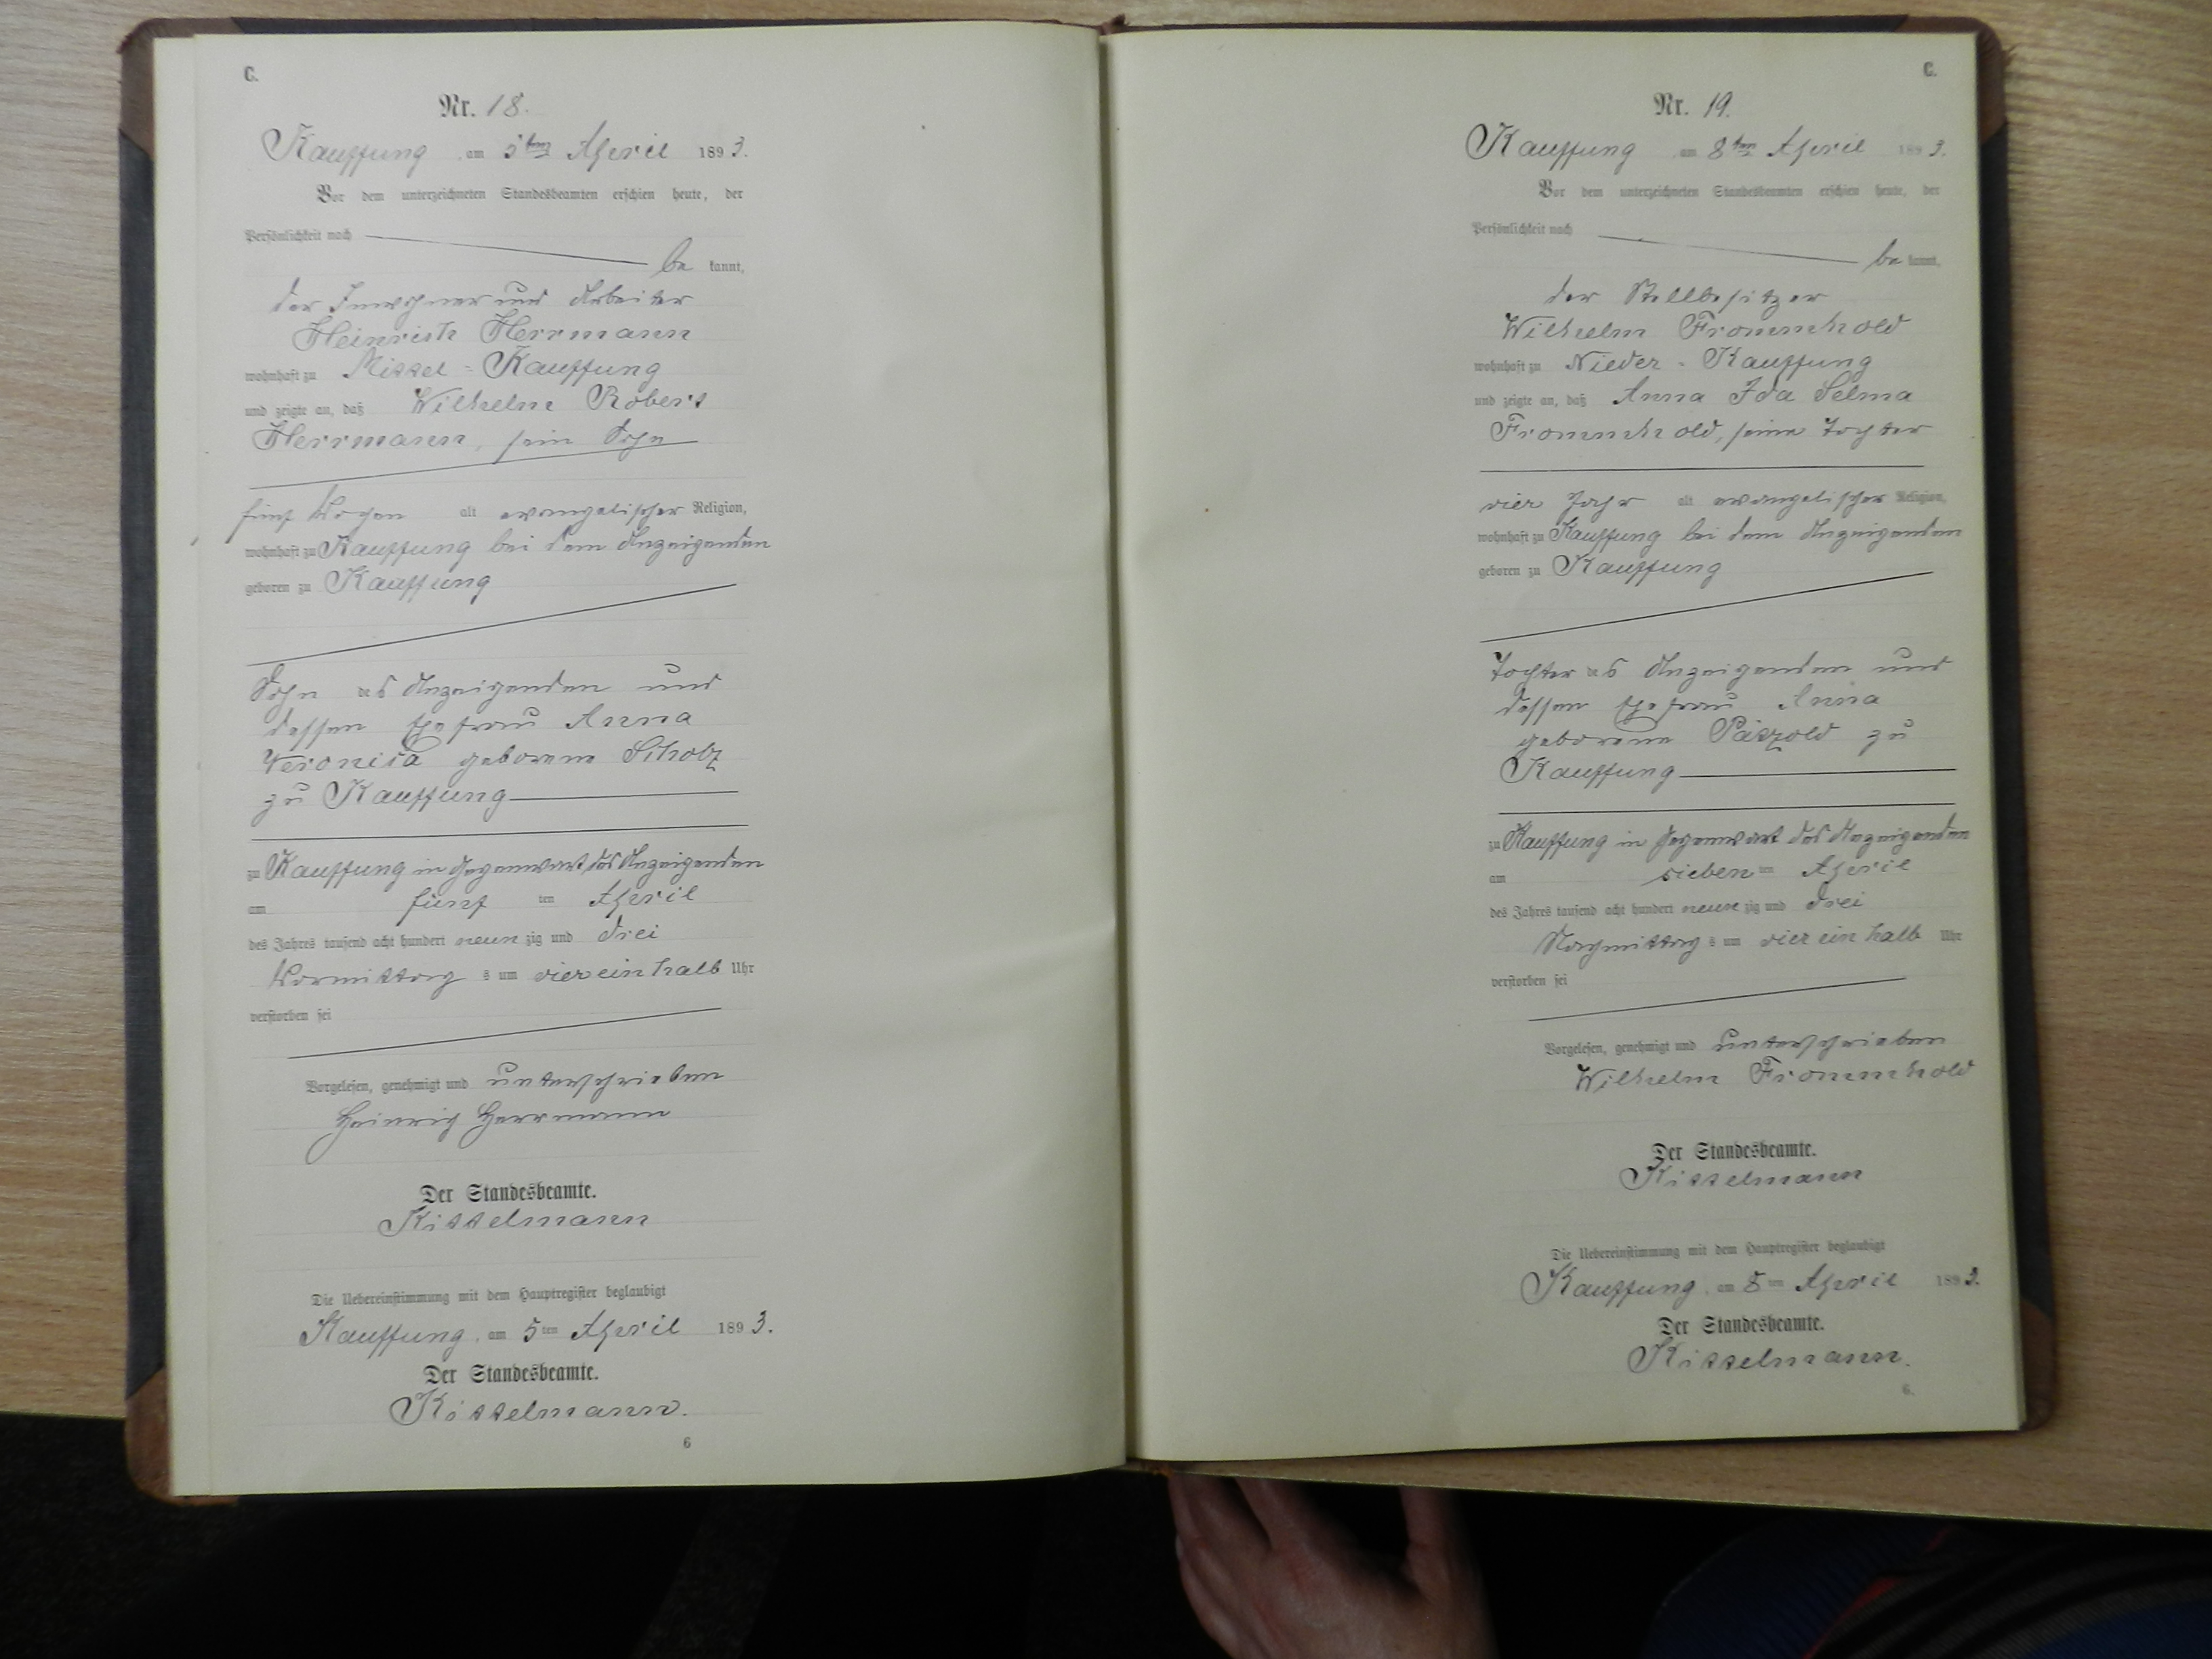 C.
Nr. 18.
Kauffung, am 5ten April 1893.
Vor dem unterzeichneten Standesbeamten erschien heute, der
Persönlichkeit nach
be kannt,
der Inwohner und Arbeiter
Heinrich Herrmann
wohnhaft zu Mittel-Kauffung
und zeigte an, daß Wilhelm Robert
Herrmann, sein Sohn
fünf Wochen alt evangelischer Religion,
wohnhaft zu Kauffung bei dem Anzeigenden
geboren zu Kauffung
Sohn des Anzeigenden und
dessen Ehefrau Anna
Veronica geborene Scholz
zu Kauffung
zu Kauffung in Gegenwart des Anzeigenden
am fünf ten April
des Jahres tausend acht hundert neunzig und drei
Vormittags um viereinhalb Uhr
verstorben sei
Vorgelesen, genehmigt und unterschrieben
Heinrich Herrmann
Der Standesbeamte.
Kittelmann
Die Uebereinstimmung mit dem Hauptregister beglaubigt
Kauffung, am 5ten April 1893.
Der Standesbeamte.
Kittelmann.
6
C.
Nr. 19.
Kauffung am 8ten April 1893.
Vor dem unterzeichneten Standesbeamten erschien heute, der
Persönlichkeit nach
be kannt,
der Stellbesitzer
Wilhelm Frommhold
wohnhaft zu Nieder-Kauffung
und zeigte an, daß Anna Ida Selma
Frommhold, seine Tochter
vier Jahr alt evangelischer Religion,
wohnhaft zu Kauffung bei dem Anzeigenden
geboren zu Kauffung
Tochter des Anzeigenden und
dessen Ehefrau Anna
geborene Pätzold zu
Kauffung
zu Kauffung in Gegenwart des Anzeigenden
am siebenten April
des Jahres tausend acht hundert neunzig und drei
Nachmittags um viereinhalb Uhr
verstorben sei
Vorgelesen, genehmigt und unterschrieben
Wilhelm Frommhold
Der Standesbeamte.
Kittelmann
Die Uebereinstimmung mit dem Hauptregister beglaubigt
Kauffung, am 8ten April 1893.
Der Standesbeamte.
Kittelmann.
6.